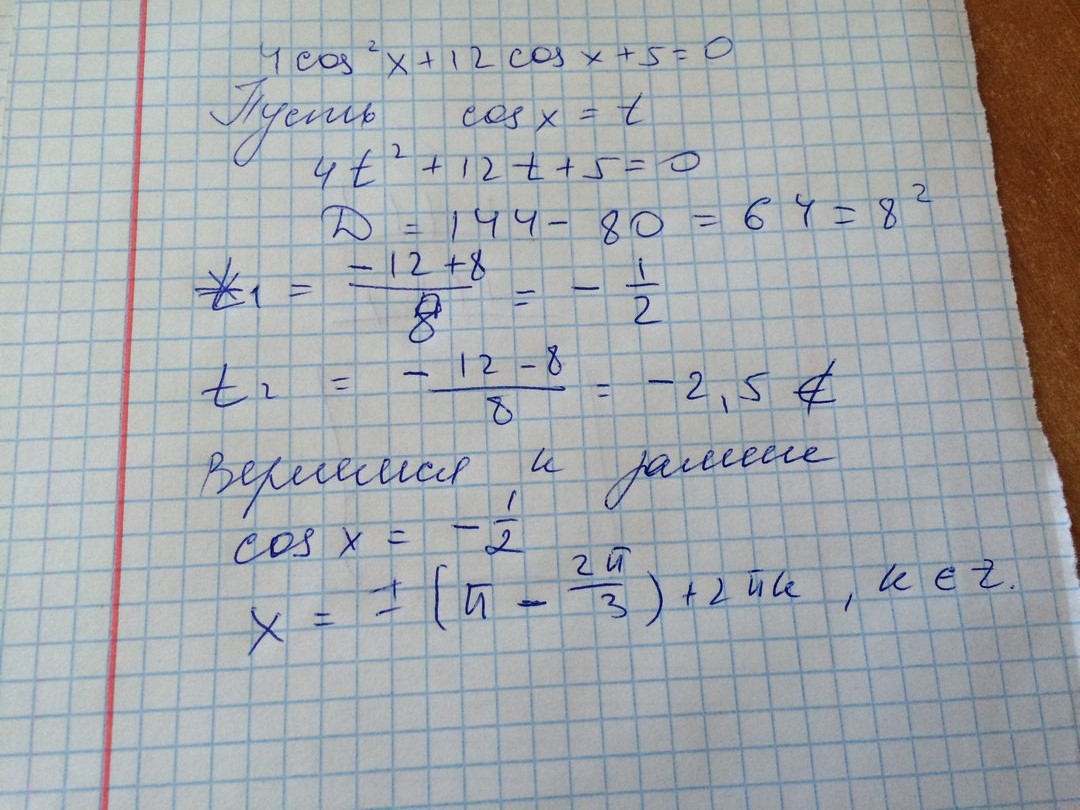 4cos²x+12cosx+5=0
Пусть cosx=t
4t²+12t+5=0
D=144-80=64=8²
t₁ = (-12+8)/8 = -1/2
t₂ = (-12-8)/8 = -2,5 ∉
Вернемся к замене
cos x = -1/2
x = ±(π - 2π/3)+2πk, k∈Z.